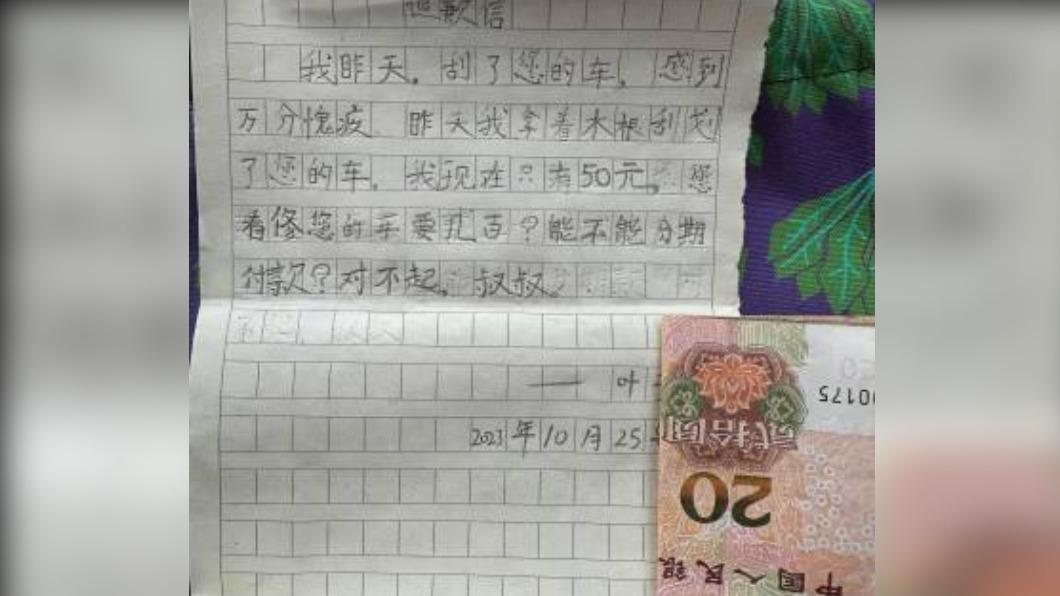 道歉信
我昨天，刮了您的车，感到
万分愧疚 昨天我拿着木棍刮划
了您的车，我现在只有50元。您
看修您的车要几百？能不能分期
付款？对不起，叔叔。
—— 叶
2023年10月25
00175
贰拾圆
20
中国人民银